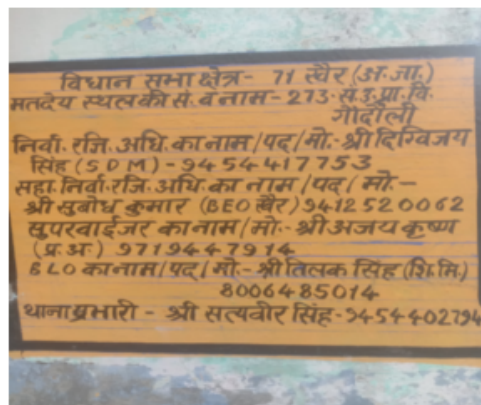 विधान सभा क्षेत्र- 71 खैर (अ.जा.)
मतदेय स्थल की सं. व नाम- 273- सं.उ.प्रा.वि.
गोंदोली
निर्वा. रजि. अधि. का नाम/पद/मो.- श्री दिग्विजय
सिंह (SDM) - 9454417753
सहा. निर्वा. रजि. अधि. का नाम/पद/मो.-
श्री सुबोध कुमार (BEO खैर) 9412520062
सुपरवाईजर का नाम/मो.- श्री अजय कृष्ण
(प्र.अ.) 9719447914
BLO का नाम/पद/मो.- श्री तिलक सिंह (शि.मि.)
8006485014
थाना प्रभारी - श्री सत्यवीर सिंह- 9454402794